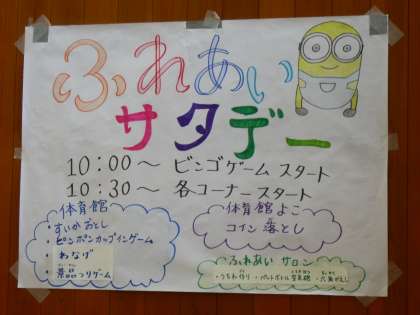 ふれあい
サタデー
10:00～ ビンゴゲーム スタート
10:30～ 各コーナースタート
体育館
・すいかおとし
・ピンポンカップインゲーム
・わなげ
・景品つりゲーム
体育館よこ
コイン落とし
ふれあい サロン
・うちわ作り ・ペットボトル空気砲 ・六角がえし